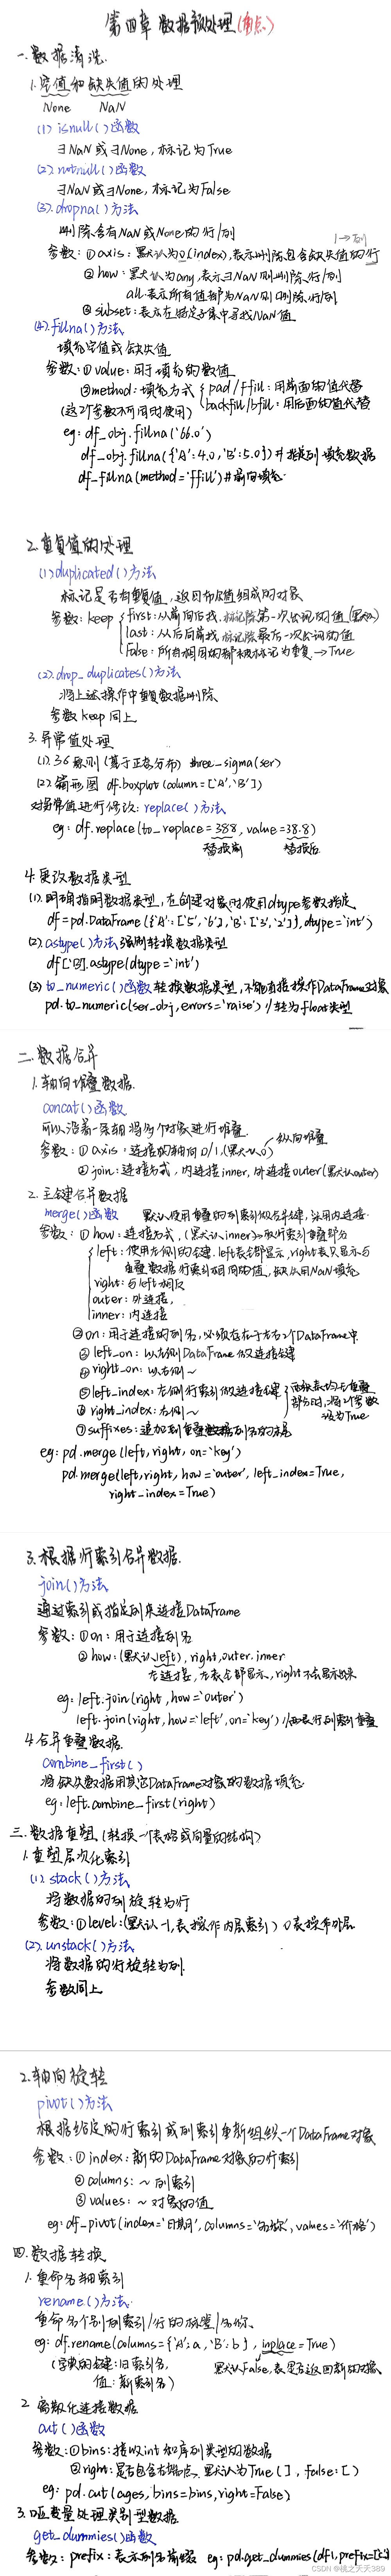 第四章 数据预处理(重点)
一.数据清洗
1.空值和缺失值的处理
None NaN
(1) isnull()函数
∃NaN或∃None,标记为True
(2).notnull()函数
∃NaN或∃None,标记为False
(3).dropna()方法
删除含有NaN或None的行/列
1→列
参数:①axis:默认为0(index),表示删除包含缺失值的行
②how:默认为any,表示∃NaN则删除行/列
all表示所有值都为NaN则删除行/列
③subset:表示在指定子集中寻找NaN值
(4).fillna()方法
填充空值或缺失值
参数:①value:用于填充的数值
②method:填充方式 pad/ffill:用前面的值代替
(这2个参数不可同时使用) backfill/bfill:用后面的值代替
eg:df_obj.fillna('66.0')
df_obj.fillna({'A':4.0,'B':5.0})#指定列填充数据
df_fillna(method='ffill')#前向填充
2.重复值的处理
(1)duplicated()方法
标记是否有重复值,返回布尔值组成的对象
参数:keep first:从前向后找,标记除第一次出现的值(默认)
last:从后向前找 标记除最后一次出现的值
False:所有相同的都被标记为重复→True
(2).drop_duplicates()方法
将上述操作中重复数据删除
参数keep同上
3.异常值处理
(1).3σ原则(基于正态分布) three_sigma(ser)
(2).箱形图 df.boxplot(column=['A','B'])
对异常值进行修改:replace()方法
eg:df.replace(to_replace=388,value=38.8)
替换前 替换后
4.更改数据类型
(1).明确指明数据类型,在创建对象时使用dtype参数指定
df=pd.DataFrame({'A':['5','6'],'B':['3','2']},dtype='int')
(2).astype()方法强制转换数据类型
df['B'].astype(dtype='int')
(3) to_numeric()函数转换数据类型,不能直接操作DataFrame对象
pd.to_numeric(ser_obj,errors='raise')//转为float类型
二.数据合并
1.轴向堆叠数据
concat()函数
可以沿着一条轴将多个对象进行堆叠.
参数:①axis:连接的轴向0/1,(默认0) 纵向堆叠
②join:连接方式,内连接inner,外连接outer(默认outer)
2.主键合并数据
merge()函数 默认使用重叠的列索引做合并键,采用内连接.
参数:①how:连接方式,(默认inner)→取行索引重叠部分
left:使用左侧的主键.left表全部显示,right表只显示与
重叠数据行索引相同的值,缺失用NaN填充
right:与left相反
outer:外连接,
inner:内连接
②on:用于连接的列名,必须存在于左右2个DataFrame中
③left_on:以左侧DataFrame做连接主键
④right_on:以右侧~
⑤left_index:左侧行索引做连接主键
⑥right_index:右侧~
⑦suffixes:追加到重叠数据列名的末尾
eg:pd.merge(left,right,on='key')
pd.merge(left,right,how='outer',left_index=True,
right_index=True)
3.根据行索引合并数据
join()方法
通过索引或指定列来连接DataFrame
参数:①on:用于连接列名
②how:(默认left),right,outer.inner
左连接,左表全部显示,right不会显示出来
eg:left.join(right,how='outer')
left.join(right,how='left',on='key')//两表行列索引重叠
4.合并重叠数据
combine_first()
将缺失数据用其它DataFrame对象的数据填充
eg:left.combine_first(right)
三.数据重塑(转换一个表格或向量的结构)
1.重塑层次化索引
(1).stack()方法
将数据的列旋转为行
参数:①level:(默认-1,表操作内层索引)0表操作外层
(2).unstack()方法
将数据的行旋转为列.
参数同上
2.轴向旋转
pivot()方法
根据给定的行索引或列索引重新组织一个DataFrame对象
参数:①index:新的DataFrame对象的行索引
②columns:~列索引
③values:~对象的值
eg:df_pivot(index='日期',columns='名称',values='价格')
四.数据转换
1.重命名轴索引
rename()方法
重命名个别列索引/行的标签/名称.
eg:df.rename(columns={'A':a,'B':b},inplace=True)
(字典的主键:旧索引名, 默认False,表是否返回新的对象
值:新索引名)
2.离散化连续数据
cut()函数
参数:①bins:接收int和序列类型的数据
②right:是否包含右端点,默认为True(],false:[)
eg:pd.cut(ages,bins=bins,right=False)
3.哑变量处理类别型数据
get_dummies()函数
参数:prefix:表示列名前缀 eg:pd.get_dummies(df1,prefix=['col'])
CSDN @桃之夭夭389